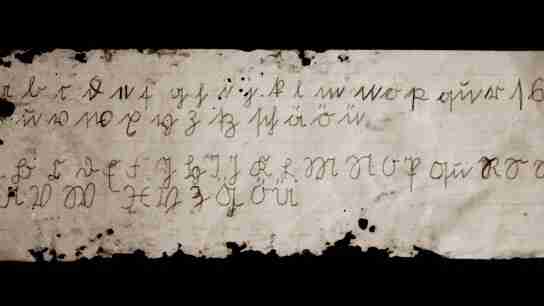 a b c d e f g h i j k l m n o p qu r s ß
u v w x y z tz sch ä ö ü
B C D E F G H I J K L M N O P Qu R S S
U V W X Y Z Ä Ö Ü